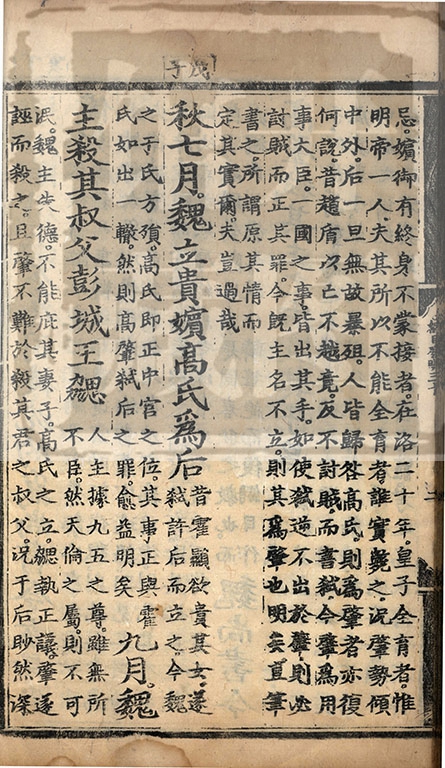 戊子
忌。嬪御有終身不蒙接者。在洛二十年。皇子全育者。惟
明帝一人。夫其所以不能全育者。誰實斃之。況肇勢傾
中外。后一旦無故暴殂。人皆歸咎高氏。則爲肇者亦復
何說。昔趙盾以亡不越竟。反不討賊。而書弑。今肇爲用
事大臣。一國之事。皆出其手。如使弑逆不出於肇。則必
討賊而正其罪。今既主名不立。則其爲肇也明矣。直筆
書之。所謂原其情而
定其實爾。夫豈過哉
秋七月。魏立貴嬪高氏爲后
昔霍顯欲貴其女。遂
弑許后而立之。今魏
之于氏方殞。高氏即正中宮之位。其事正與霍
氏如出一轍。然則高肇弑后之罪。愈益明矣
九月。魏
主殺其叔父彭城王勰
人主據九五之尊。雖無所
不臣。然天倫之屬。則不可
泯。魏主失德。不能庇其妻子。高氏之立。勰執正議。肇遂
誣而殺之。且肇不難於殺其君之叔父。況于后眇然深